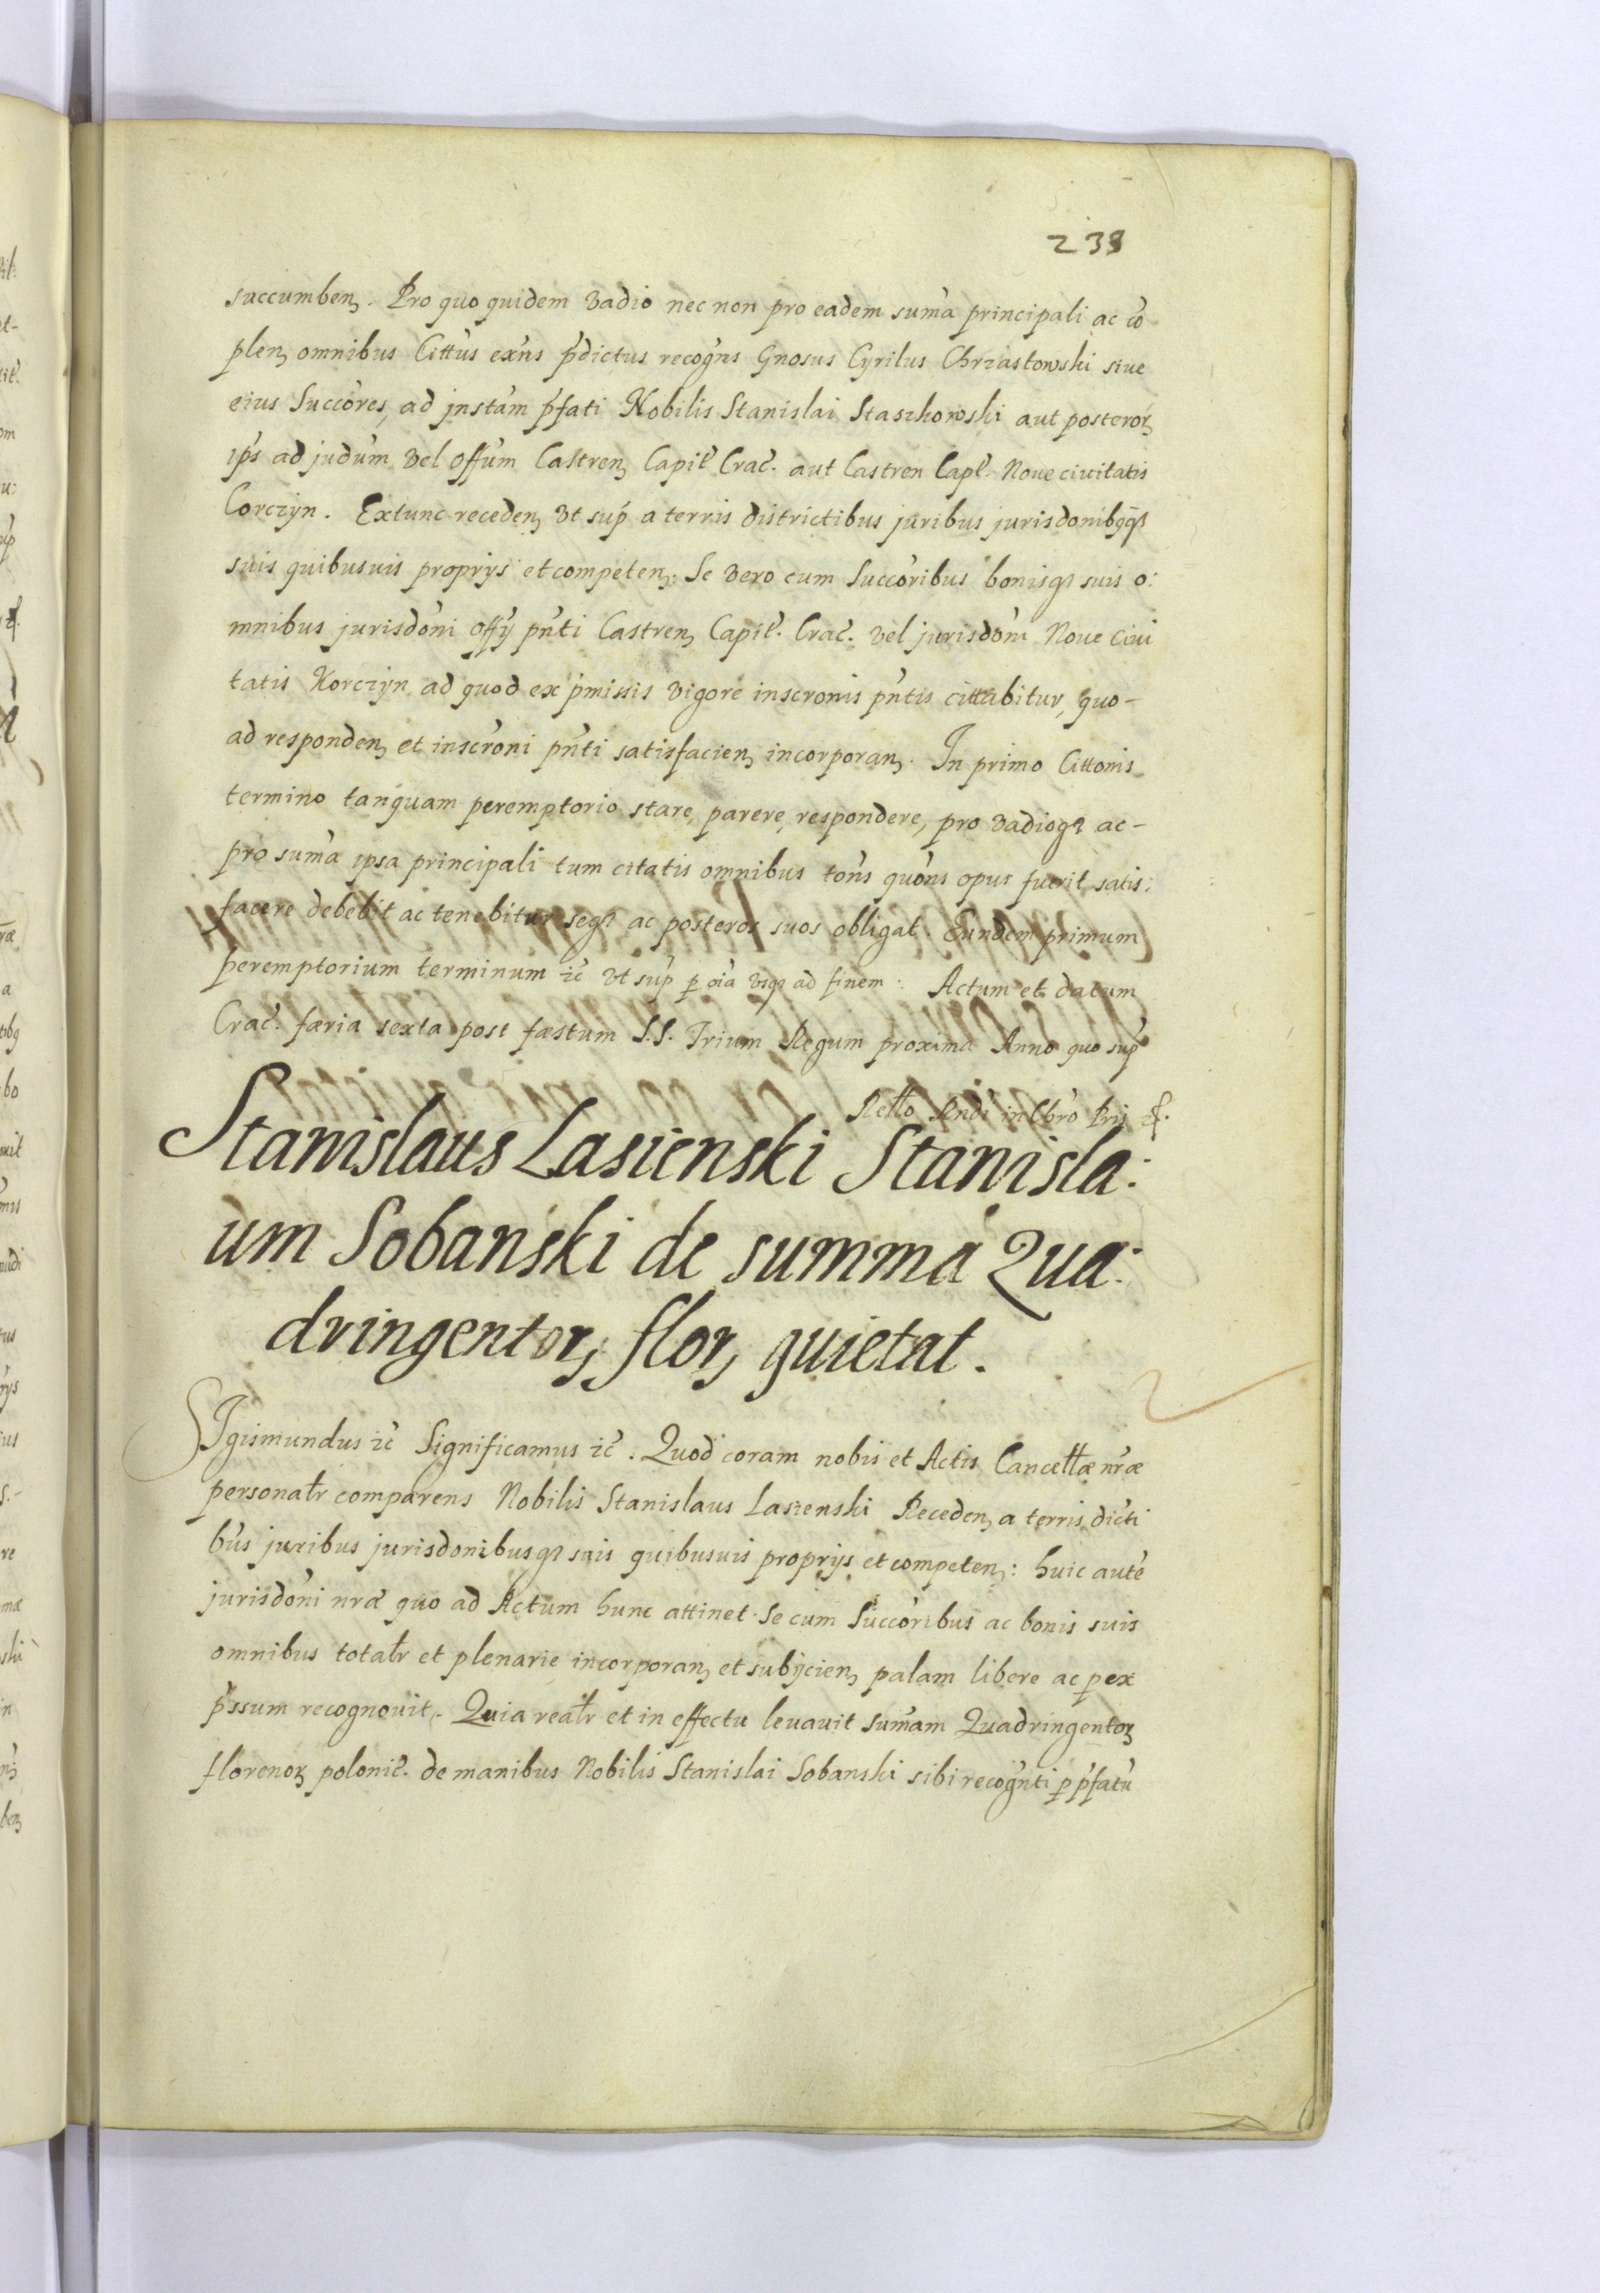 238
succumben. Pro quo quidem vadio nec non pro eadem suma principali ac co
plen omnibus Cittus exns pdictus recogns Gnosus Cyrilus Chrzastowski siue
eius Succores, ad jnstam pfati Nobilis Stanislai Staszkowski aut posteror
ips ad judum vel offum Castren Capit Crac. aut Castren Capt. Noue ciuitatis
Corczyn. Extunc receden vt sup a terris districtibus juribus jurisdonibqq
suis quibusuis proprijs et competen: Se vero cum Succoribus bonisq suis o:
mnibus jurisdoni offij pnti Castren Capit. Crac. vel jurisdom Noue Ciui
tatis Korczyn ad quod ex pmissis vigore inscronis pntis cittabitur, quo-
ad responden et inscroni pnti satisfacien incorporan. In primo Cittonis
termino tanquam peremptorio stare, parere, respondere, pro vadioq ac-
pro suma ipsa principali tum citatis omnibus tons quons opus fuerit satis:
facere debebit ac tenebitur seq ac posteros suos obligat. Eundem primum
peremptorium terminum zc vt sup p oia vsq ad finem. Actum et datum
Crac. faeria sexta post faestum S.S. Trium Regum proxima Anno quo sup
Stanislaus Lasienski Stanisla:
um Sobanski de summa Qua:
dringentor, flor, quietat.
Sigismundus zc Significamus zc. Quod coram nobis et Actis Cancellae nrae
personalr comparens Nobilis Stanislaus Lasienski Receden a terris dicti
bus juribus jurisdonibusq suis quibusuis proprijs et competen: huic aute
jurisdoni nrae quo ad Actum hunc attinet Se cum Succoribus ac bonis suis
omnibus totalr et plenarie incorporan et subijcien palam libere ac p ex
pssum recognouit. Quia realr et in effectu leuauit sumam Quadringentor
florenor polonic. de manibus Nobilis Stanislai Sobanski sibi recognti p pfatu